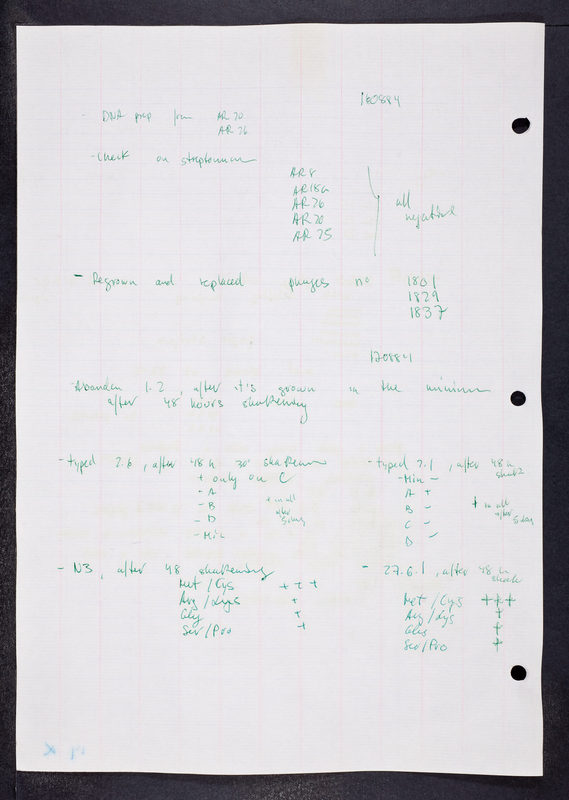 160884
- DNA prep from AR 20
AR 26
- Check on streptomicin
AR 8
AR 18a
AR 26
AR 20
AR 25
all
negative
- Regrown and replaced phages nº 1801
1829
1837
170884
- Abandon 1.2, after it's grown in the minimum
after 48 hours shakening
- typed 2.6, after 48 h 30° shaken
+ only on C
- A
- B
- D
- Min
+ in all
after
5 days
- typed 7.1, after 48 h
- Min -
A +
B -
C -
D -
+ in all
after
5 days
- N3, after 48 shakening
Met / Cys + + +
Arg / Lys +
Gly +
Ser / Pro +
- 27.6.1, after 48 h
shake
Met / Cys +++
Arg / Lys +
Gly +
Ser / Pro +